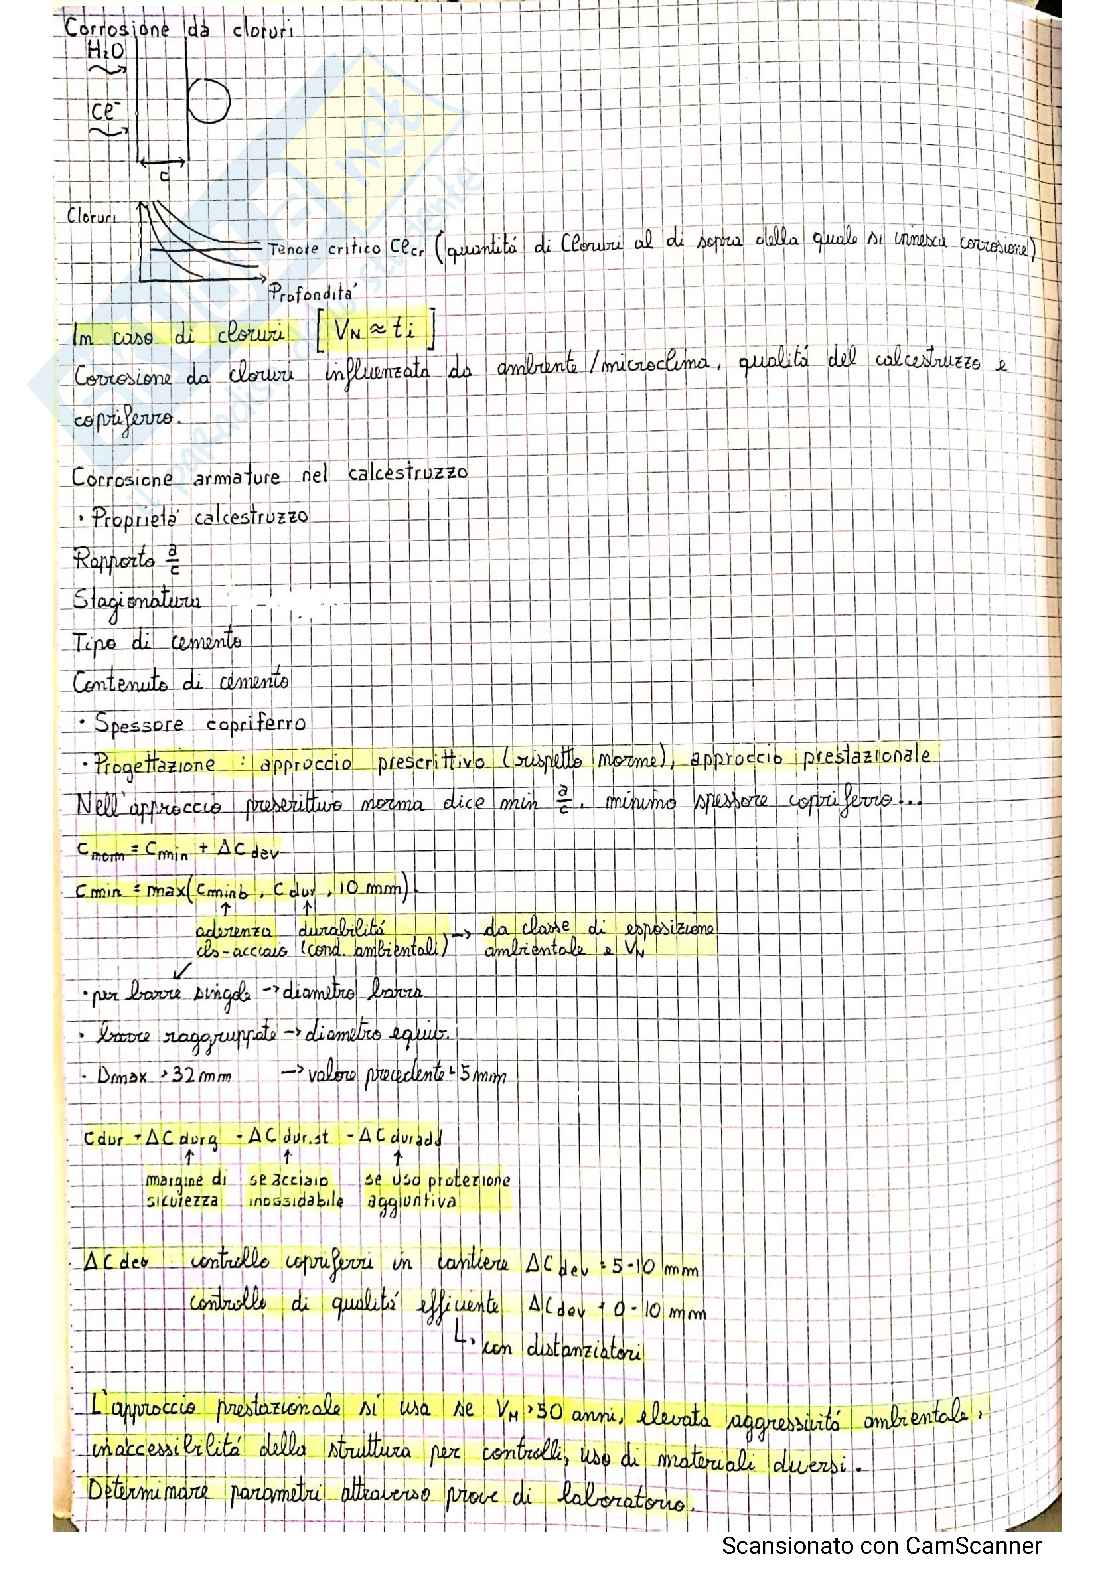 Corrosione da cloruri
H2O
Cl⁻
d
Cloruri
Tenore critico Clcr (quantitá di Cloruri al di sopra della quale si innesca corrosione)
Profonditá
In caso di cloruri [VN ≈ ti]
Corrosione da cloruri influenzata da ambiente/microclima, qualitá del calcestruzzo e
copriferro.
Corrosione armature nel calcestruzzo
· Proprietá calcestruzzo
Rapporto a/c
Stagionatura
Tipo di cemento
Contenuto di cemento
· Spessore copriferro
· Progettazione: approccio prescrittivo (rispetto norme), approccio prestazionale
Nell'approccio prescrittivo norma dice min a/c, minimo spessore copriferro...
Cnom = Cmin + ΔCdev
Cmin = max(Cminb, Cdur, 10 mm)
↑ ↑
aderenza durabilitá → da classe di esposizione
cls-acciaio (cond. ambientali) ambientale e VN
· per barre singole → diametro barra
· barre raggruppate → diametro equiv.
· Dmax > 32 mm → valore precedente + 5 mm
Cdur + ΔCdurg - ΔCdur.st - ΔCduradd
↑ ↑ ↑
margine di se acciaio se uso protezione
sicurezza inossidabile aggiuntiva
ΔCdev controllo copriferri in cantiere ΔCdev = 5-10 mm
controllo di qualitá efficiente ΔCdev = 0-10 mm
↳ con distanziatori
L'approccio prestazionale si usa se VN > 50 anni, elevata aggressivitá ambientale,
inaccessibilitá della struttura per controlli, uso di materiali diversi.
Determinare parametri attraverso prove di laboratorio.
Scansionato con CamScanner